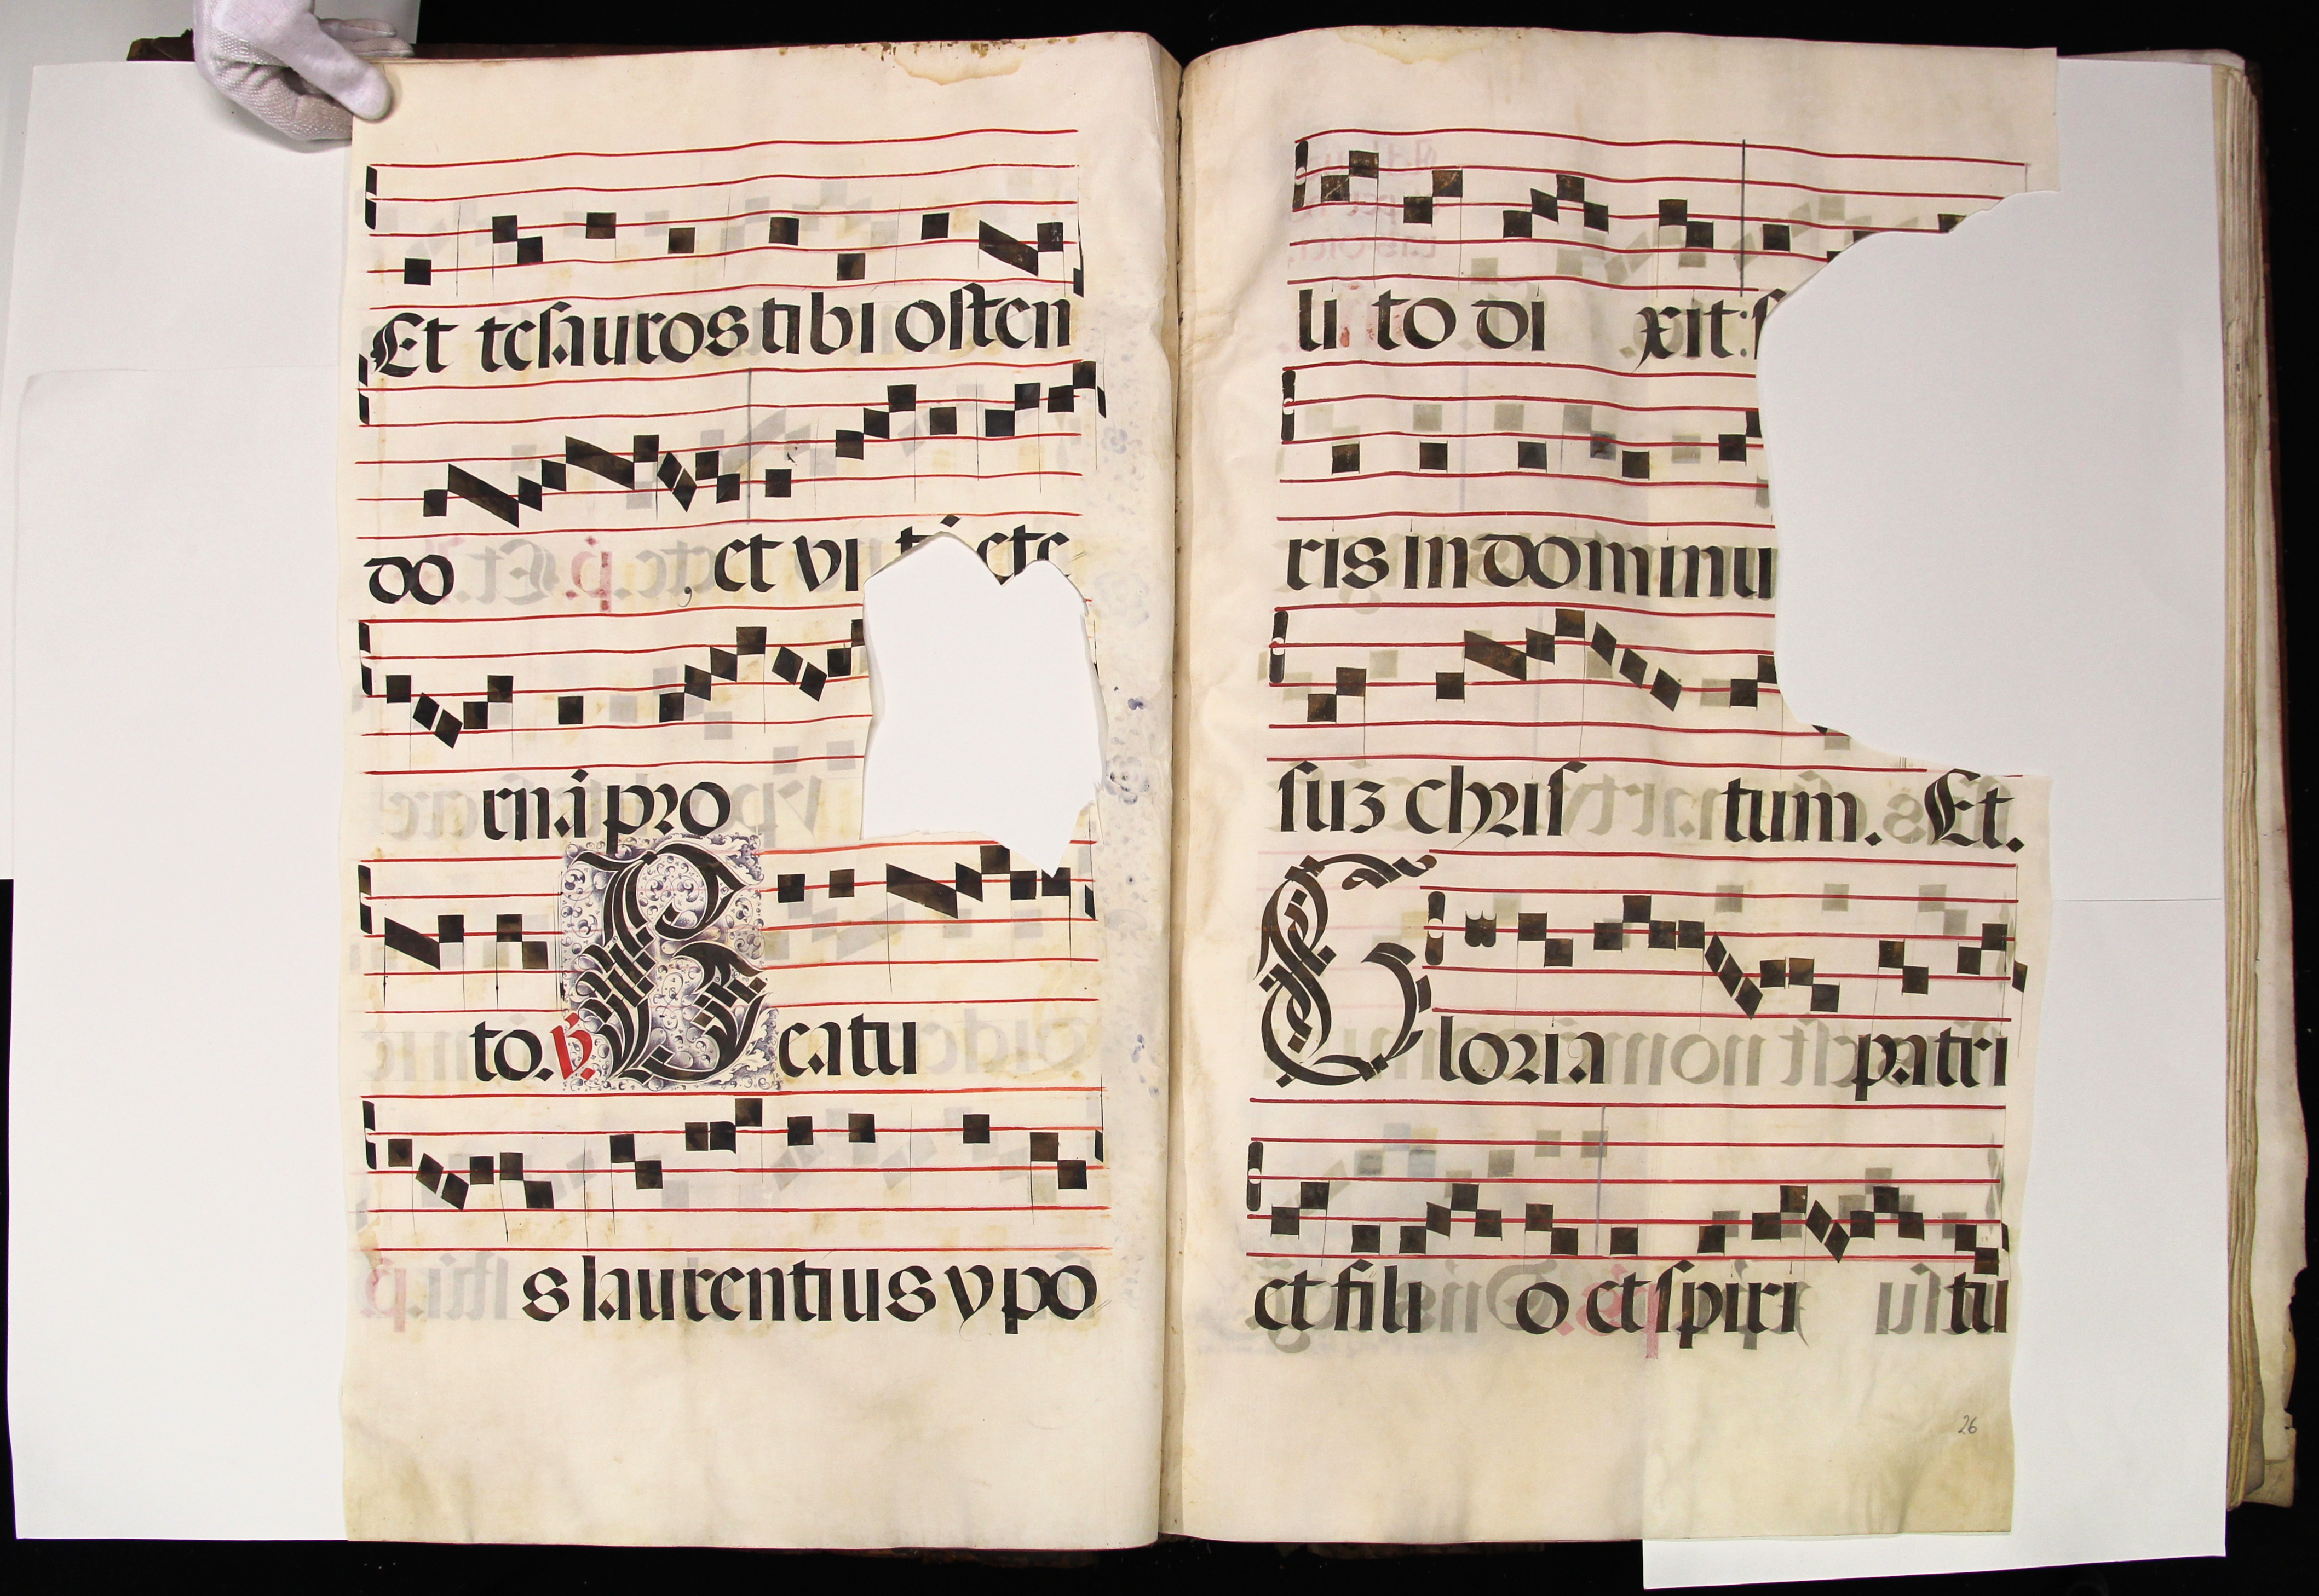 Et tesauros tibi osten
do et vi
rna pro
to. ℣. Beatu
s laurentius ypo
li to di xit: s
ris in dominu
suz chris tum. Et.
Gloria patri
et fili o et spiri tu
26